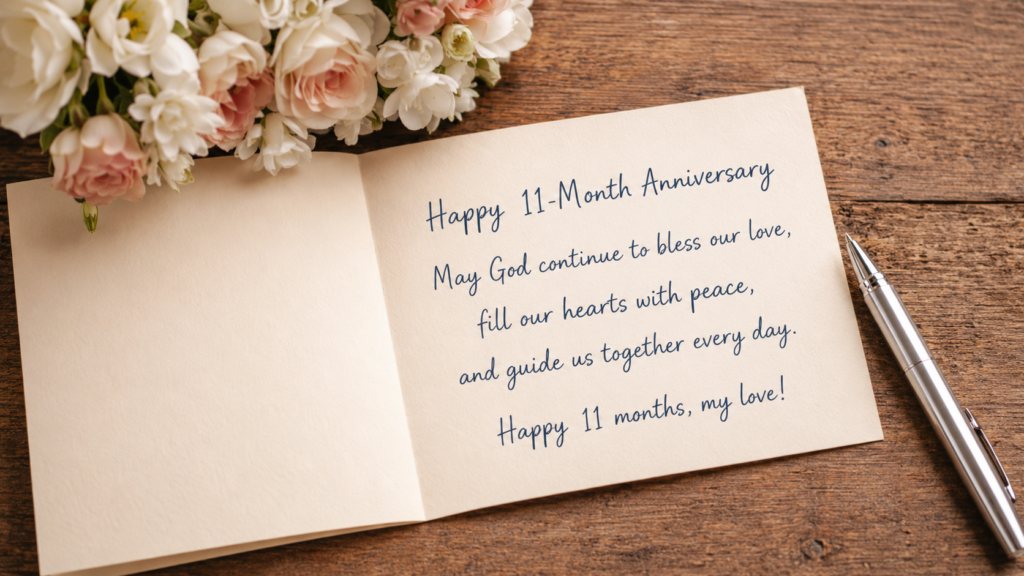 Happy 11-Month Anniversary
May God continue to bless our love,
fill our hearts with peace,
and guide us together every day.
Happy 11 months, my love!